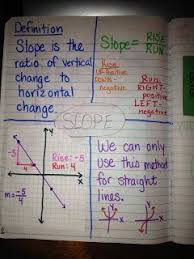 Definition
Slope is the
ratio of vertical
change to
horizontal
change
Slope= RISE
RUN
Rise
UP-Positive
DOWN-
negative
Run
RIGHT-
positive
LEFT-
NEGATIVE
SLOPE
y
-5
4
Rise: -5
Run: 4
x
m= -5
4
We can only
use this method
for straight
lines.